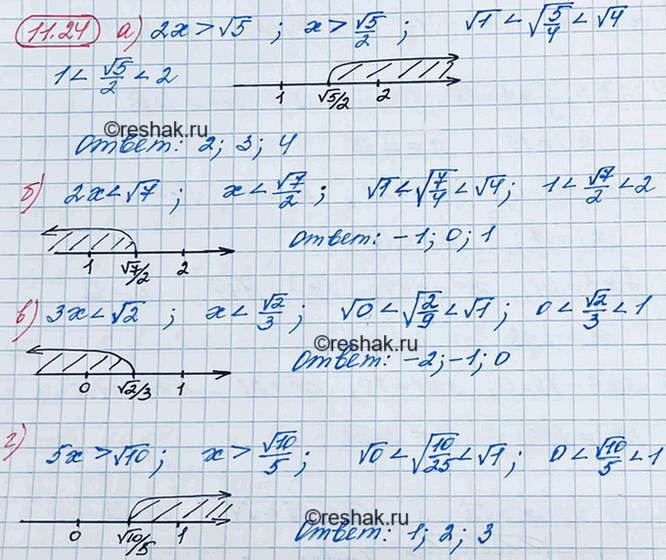 11.24 а) 2x > √5 ; x > √5/2 ; √1 < √(5/4) < √4
1 < √5/2 < 2
1 √5/2 2
©reshak.ru
ответ: 2; 3; 4
б) 2x < √7 ; x < √7/2 ; √1 < √(7/4) < √4; 1 < √7/2 < 2
1 √7/2 2
ответ: -1; 0; 1
в) 3x < √2 ; x < √2/3 ; √0 < √(2/9) < √1; 0 < √2/3 < 1
©reshak.ru
0 √2/3 1
ответ: -2; -1; 0
г) 5x > √10; x > √10/5 ; √0 < √(10/25) < √1; 0 < √10/5 < 1
0 √10/5 1
©reshak.ru
ответ: 1; 2; 3